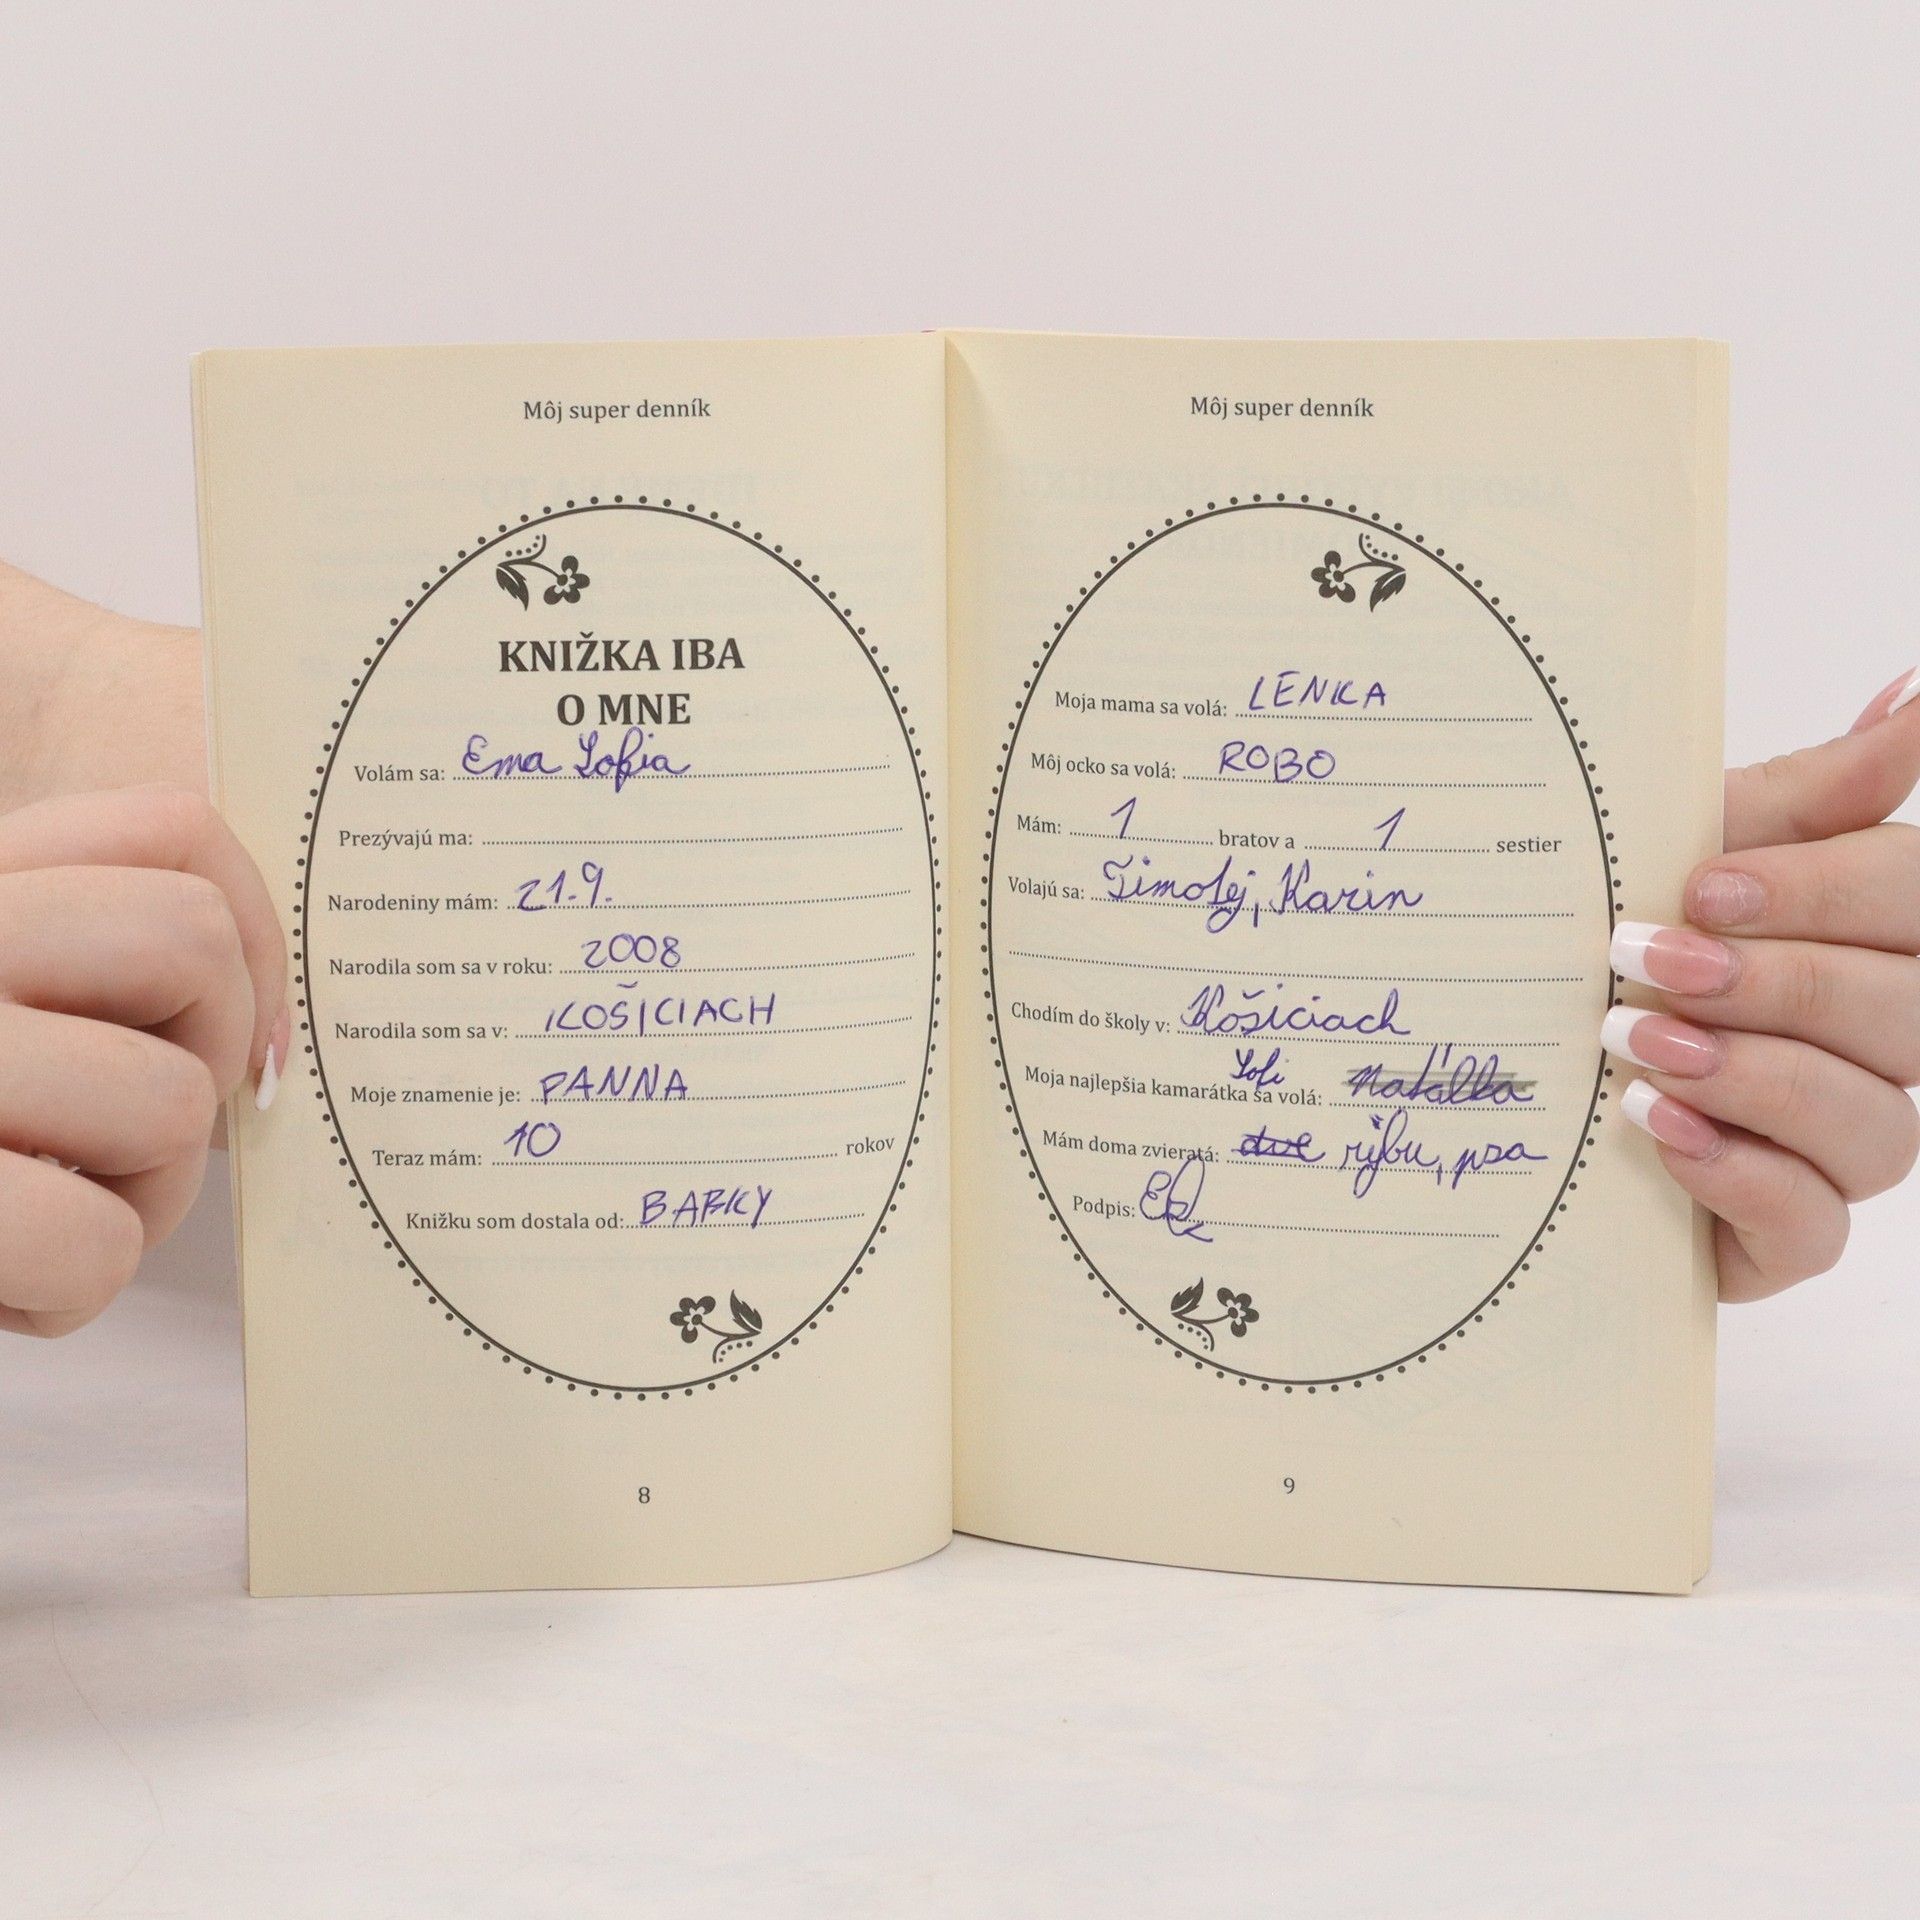 Môj super denník
KNIŽKA IBA
O MNE
Volám sa: Ema Sofia
Prezývajú ma:
Narodeniny mám: 21.9.
Narodila som sa v roku: 2008
Narodila som sa v: KOŠICIACH
Moje znamenie je: PANNA
Teraz mám: 10 rokov
Knižku som dostala od: BABKY
8
Môj super denník
Moja mama sa volá: LENKA
Môj ocko sa volá: ROBO
Mám: 1 bratov a 1 sestier
Volajú sa: Timotej, Karin
Chodím do školy v: Košiciach
Sofi
Moja najlepšia kamarátka sa volá: Natálka
Mám doma zvieratá: dve rybu, psa
Podpis:
9